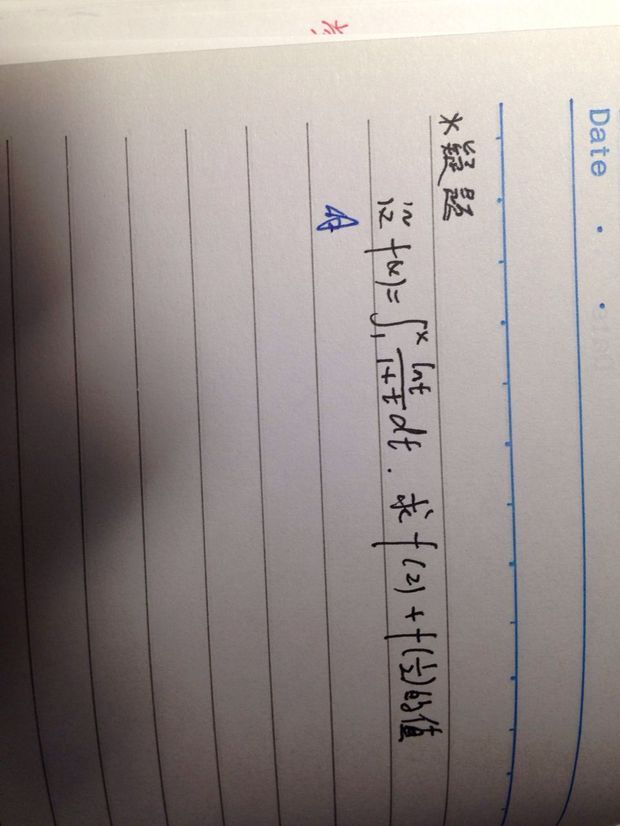 Date
*疑题
记 f(x)=∫₁ˣ lnt/(1+t) dt. 求 f(2)+f(1/2)的值